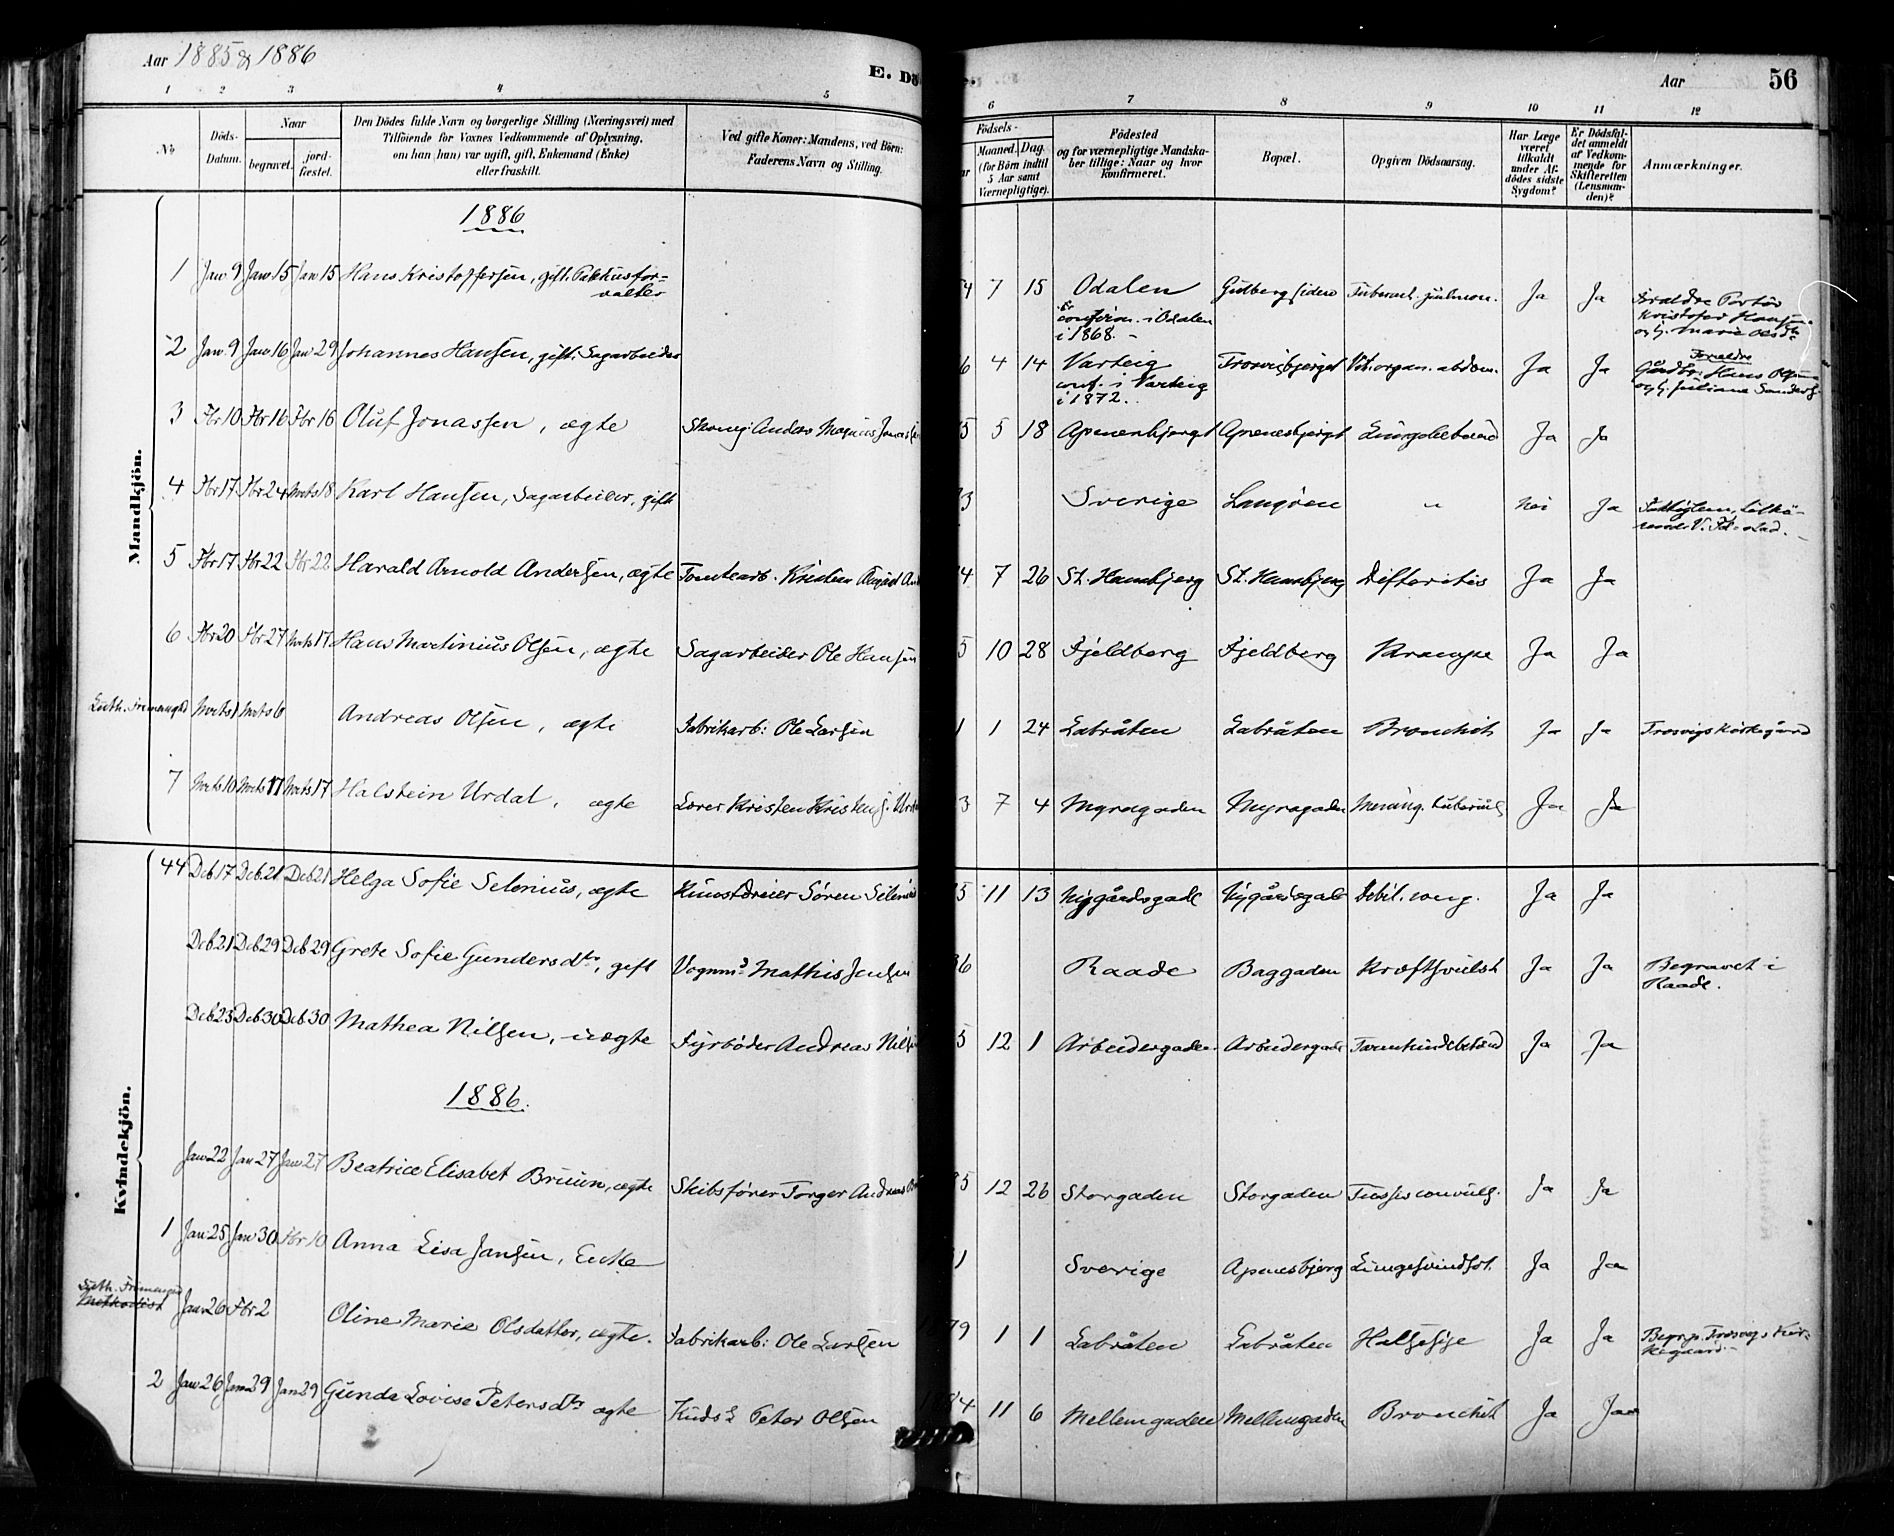 Aar 1885 & 1886
E. Dö
Aar
56
1 2 3 4 5 6 7 8 9 10 11 12
No
Döds-Datum.
Naar
begravet.
jord-fæstet.
Den Dödes fulde Navn og borgerlige Stilling (Næringsvei) med
Tilföiende for Voxnes Vedkommende af Oplysning,
om han (hun) var ugift, gift, Enkemand (Enke)
eller fraskilt.
Ved gifte Koner: Mandens, ved Börn:
Faderens Navn og Stilling.
Födsels-
Maaned. Dag.
(for Börn indtil
5 Aar samt
Værnepligtige).
Födested
og for værnepligtige Mandska-
ber tillige: Naar og hvor
Konfirmeret.
Bopæl.
Opgiven Dödsaarsag.
Har Læge
været
tilkaldt
under Af-
dödes sidste
Sygdom?
Er Dödsfal-
det anmeldt
af Vedkom-
mende for
Skifteretten
(Lensman-
den)?
Anmærkninger.
Mandkjön.
1886
1 Jan 9 Jan 15 Jan 15 Hans Kristoffersen, gift. Pakhusfor-
valter
4 7 15 Odalen Gudbergsiden Tubercul. pulmon. Ja Ja
confirm. i Odalen
i 1868.
2 Jan 9 Jan 16 Jan 29 Johannes Hansen, gift. Sagarbeider 6 4 14 Varteig Trosvigbjerget Vit. organ. abdom. Ja Ja Forældre
conf. i Varteig
i 1872.
3 Fbr 10 Fbr 16 Fbr 16 Oluf Jonassen, ægte Skomg: Anders Magnus Jonas 5 5 18 Apenesbjergt Apenesbjergt Lungebetænd Ja Ja
4 Fbr 17 Fbr 24 Mrts 18 Karl Hansen, Sagarbeider, gift 3 Sverige Langøen " Nei Ja
5 Fbr 17 Fbr 22 Fbr 22 Harald Arnold Andersen, ægte Tomtearb. Kristian August An 4 7 26 St. Hansbjerg St. Hansbjerg Difteritis Ja Ja
6 Fbr 20 Fbr 27 Mrts 17 Hans Martinius Olsen, ægte Sagarbeider Ole Hansen 5 10 28 Fjeldberg Fjeldberg Krampe Ja Ja
Luth. Frimenighd Mrts 1 Mrts 6 Andreas Olsen, ægte Fabrikarb: Ole Larsen 1 1 24 Labråten Labråten Bronchit Ja Ja Trosvigs Kirkegård
7 Mrts 10 Mrts 17 Mrts 17 Halstein Urdal, ægte Lærer Kristen Kristensen Urd 3 7 4 Myragaden Myragaden Mening. tubercul. Ja Ja
Kvindekjön.
44 Deb. 17 Deb. 21 Deb. 21 Helga Sofie Selenius, ægte Kunstdreier Sören Seleniu 5 11 13 Nygårdsgade Nygårdsgade Debil. cong. Ja Ja
Deb 21 Deb 29 Deb 29 Grete Sofie Gundersdtr, gift Vognmd Mathis Jensen 36 Raade Baggaden Kræftsvulst Ja Ja Begravet i
Raade.
Deb 23 Deb 30 Deb 30 Mathea Nilsen, uægte Fyrböder Andreas Nilsen 5 12 1 Arbeidergaden Arbeidergade Tarmhindebetænd Ja Ja
1886.
Jan 22 Jan 27 Jan 27 Beatrice Elisabet Bruun, ægte Skibsfører Torger Andreas Br 5 12 26 Storgaden Storgaden Tussis convuls. Ja Ja
1 Jan 25 Jan 30 Fbr 10 Anna Lisa Jansen, Enke 1 Sverige Apenesbjerg Lungesvindsot. Ja Ja
Luth. Frimenighd
Methodist Jan 26 Fbr 2 Oline Marie Olsdatter, ægte. Fabrikarb: Ole Larsen 79 1 1 Labråten Labråten Halssyge Ja Ja Begr. p. Trosvigs Kir-
kegaard.
2 Jan 26 Jan 29 Jan 29 Gunda Lovise Petersdtr ægte Kudsk Peter Olsen 4 11 6 Mellemgaden Mellemgaden Bronchit Ja Ja